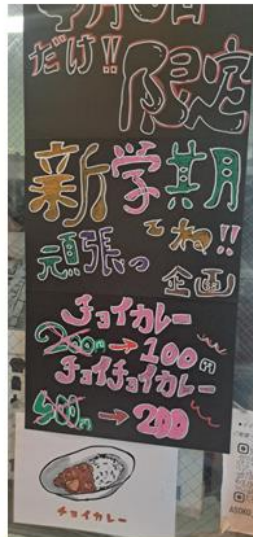 だけ!!
限定
新学期
頑張っ
てね!!
企画
チョイカレー
200円→100円
チョイチョイカレー
400円→200
チョイカレー